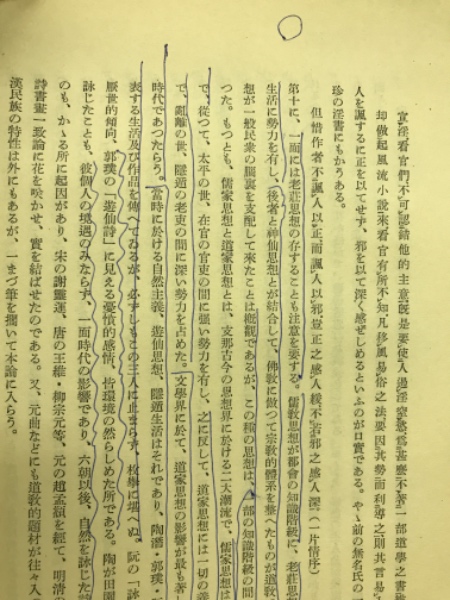 宣淫看官們不可認錯他的主意既是要使人遏淫窒慾爲甚麼不著一部道學之書
却做起風流小說來看官有所不知凡移風易俗之法要因其勢而利導之則其言易
人を諷するに正を以てせず、邪を以て深く感ぜしめるといふのが口實である。やゝ前の無名氏の一
珍の淫書にもかうある。
但惜作者不諷人以正而諷人以邪豈正之感人緩不若邪之感人深(一片情序)
第十に、一面には老莊思想の存することも注意を要する。儒敎思想が都會の知識階級に、老莊思
生活に勢力を有し、後者と神仙思想とが結合して、佛敎に倣つて宗敎的體系を整へたものが道敎
想が一般民衆の腦裏を支配して來たことは槪觀であるが、この種の思想は、一部の知識階級の間
つた。もつとも、儒家思想と道家思想とは、支那古今の思想界に於ける二大潮流で、儒家思想は
で、從つて、太平の世、在官の官吏の間に强い勢力を有し、之に反して、道家思想には一切の
で、亂離の世、隱遁の老吏の間に深い勢力を占めた。文學界に於て、道家思想の影響が最も著
時代であつたらう。當時に於ける自然主義、遊仙思想、隱遁生活はそれであり、陶潛・郭璞・
表する生活及び作品を傳へてゐるが、必ずしもこの三人に止まらず、枚擧に堪へぬ。阮の「詠
厭世的傾向、郭璞の「遊仙詩」に見える憂憤的感情、皆環境の然らしめた所である。陶が田園
詠じたことも、彼個人の境遇のみならず、一面時代の影響であり、六朝以後、自然を詠じた詩
のも、かゝる所に起因があり、宋の謝靈運、唐の王維・柳宗元等、元の趙孟頫を經て、明淸の
詩書畫一致論に花を咲かせ、實を結ばせたのである。又、元曲などにも道敎的題材が往々入
漢民族の特性は外にもあるが、一まづ筆を擱いて本論に入らう。